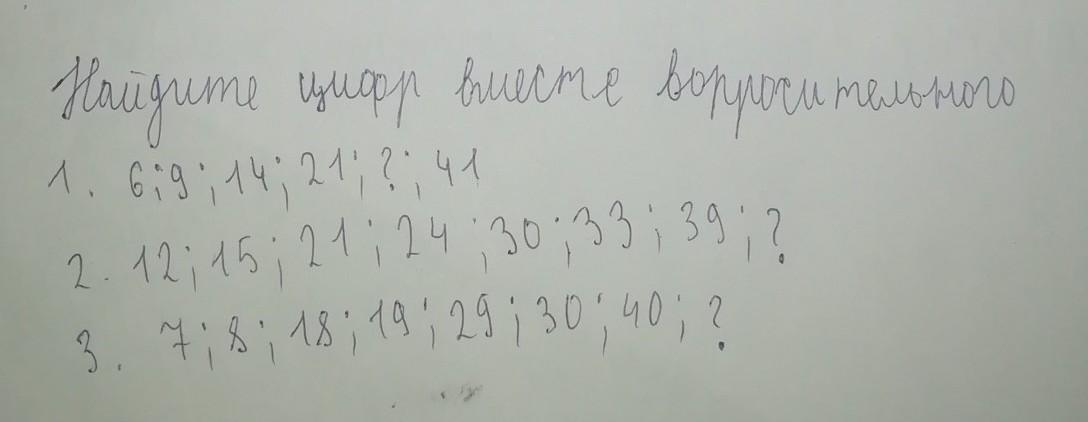 Найдите цифр вместе вопросительного
1. 6; 9; 14; 21; ?; 41
2. 12; 15; 21; 24; 30; 33; 39; ?
3. 7; 8; 18; 19; 29; 30; 40; ?